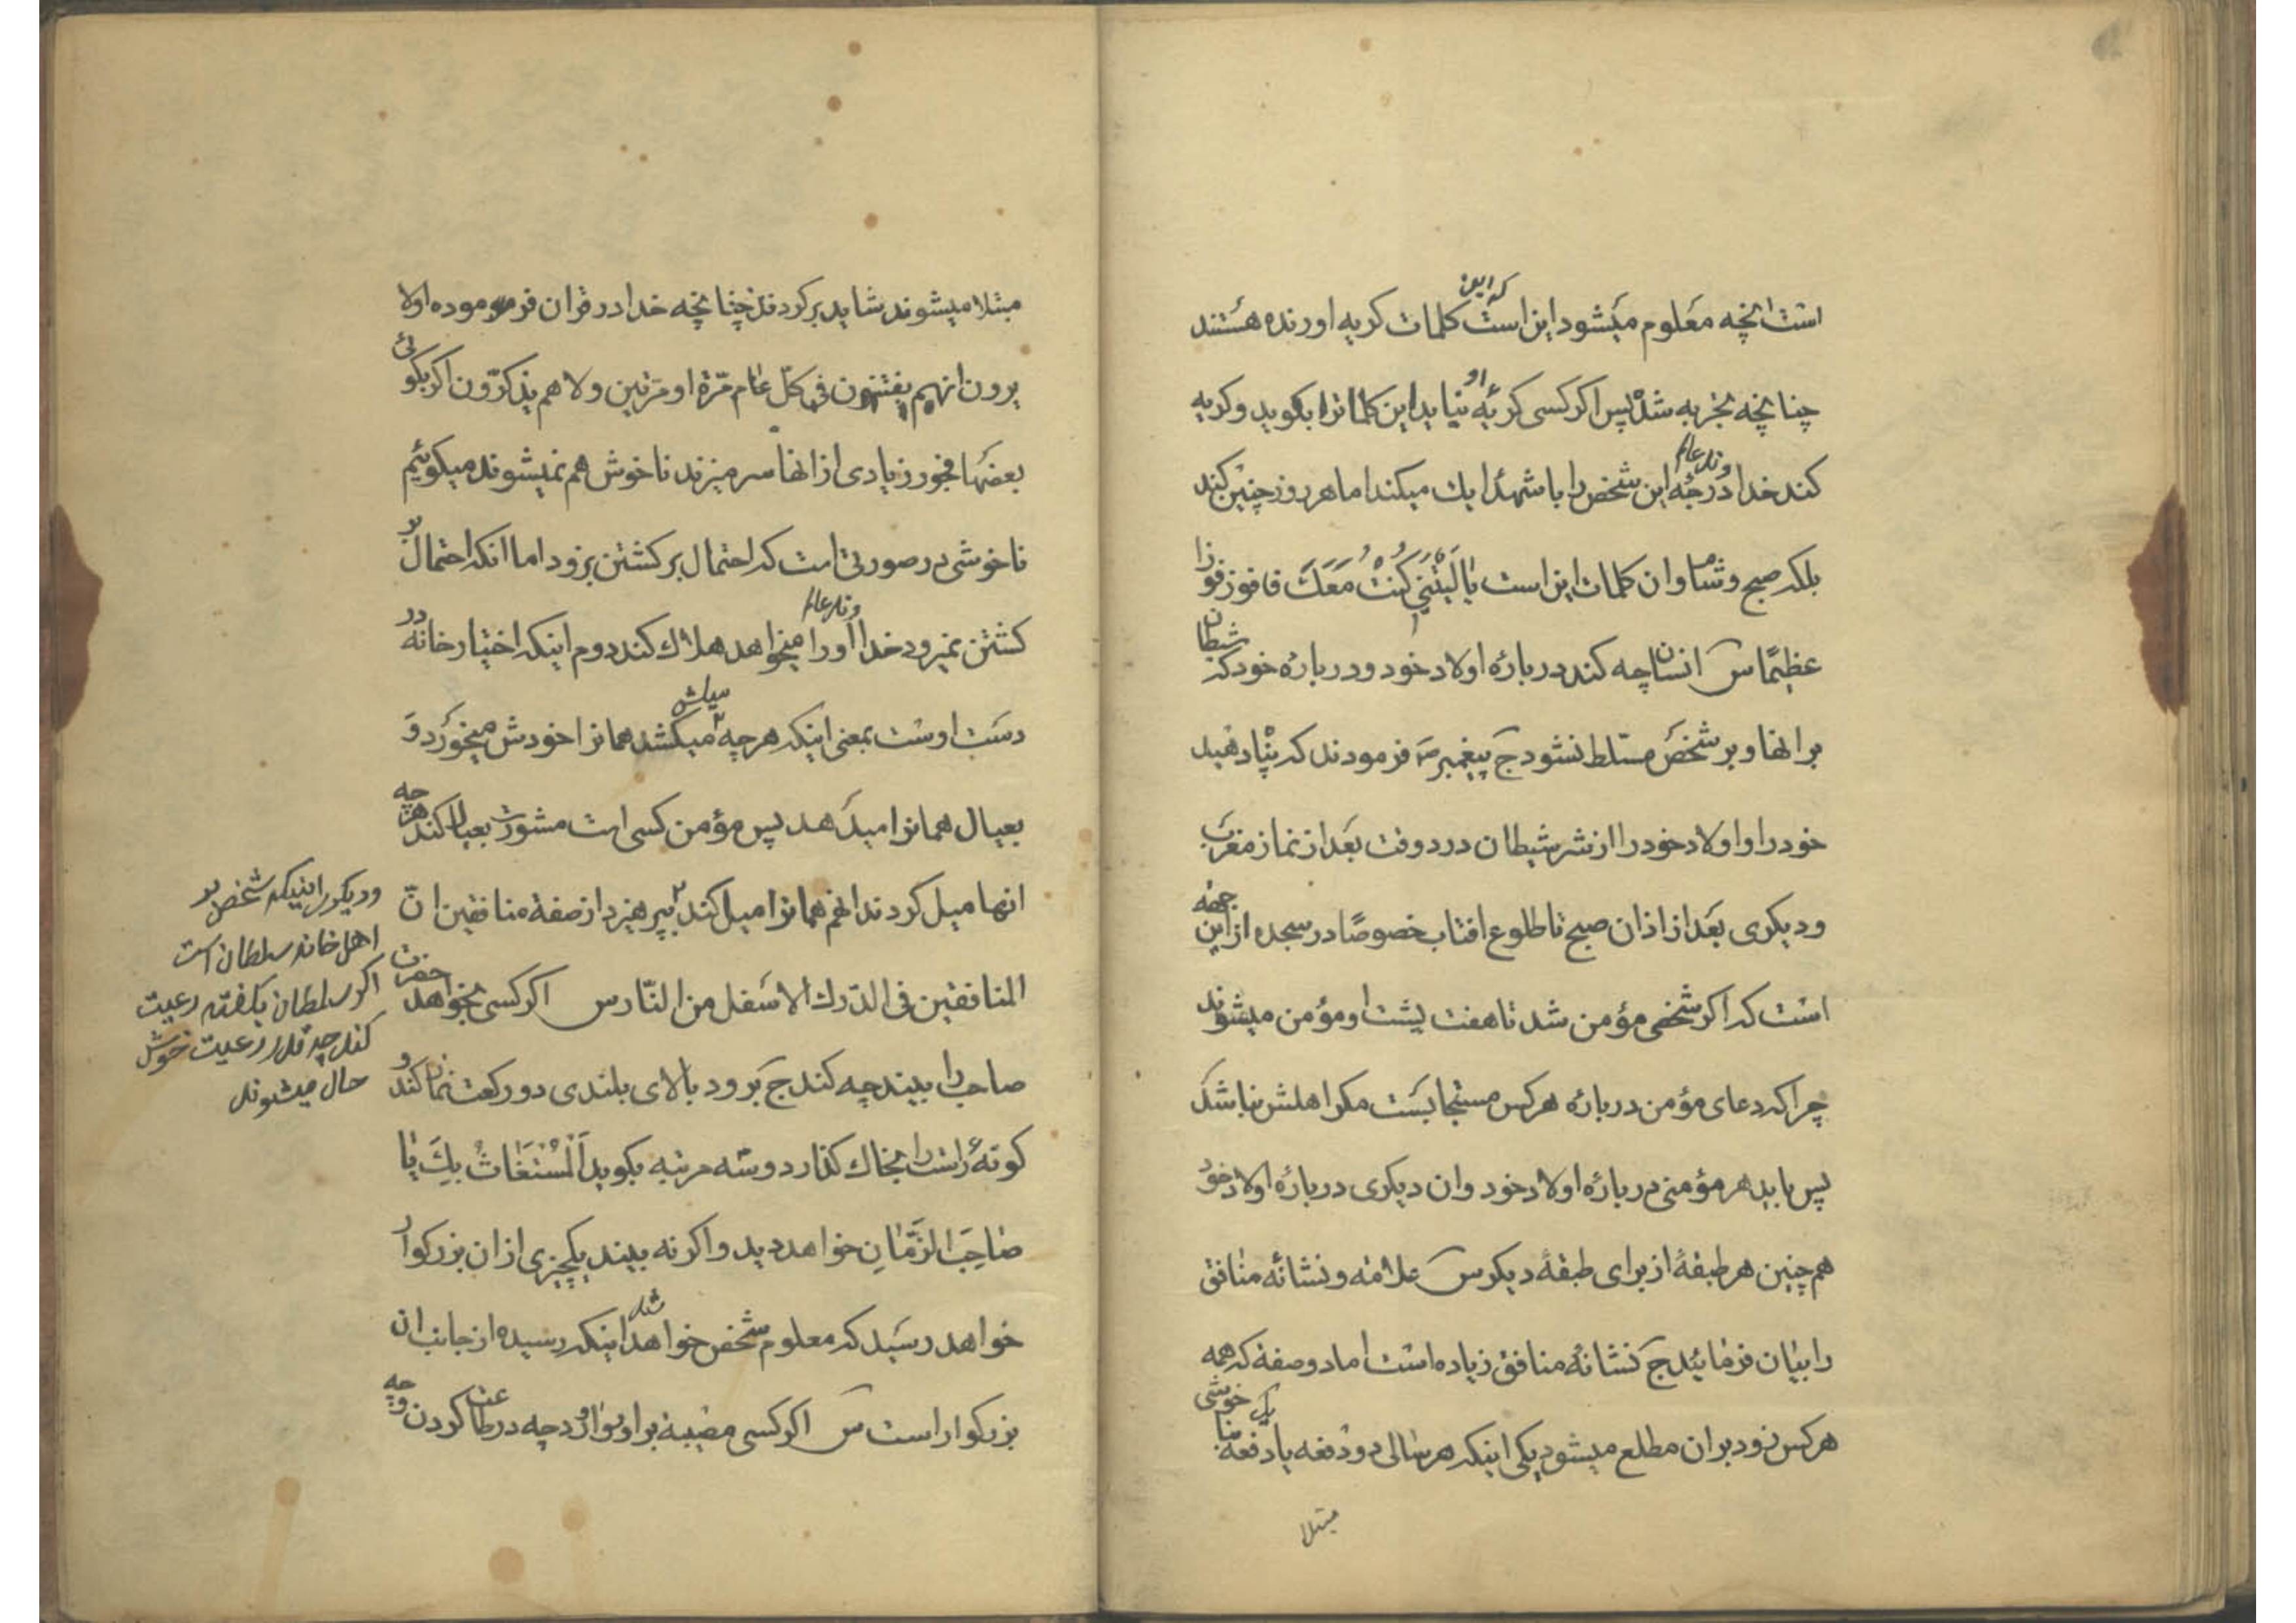 است انچه معلوم میشود این است که این کلمات کریه اورنده هستند
چنانچه تجربه شده پس اکر کسی کریهٔ او نیاید این کلماترا بکوید و کریه
کند خداوند عالم درجهٔ این شخص را با شهدا یك میکند اما هر روز چنین کند
بلکه صبح و شام و ان کلمات این است یٰا لَیْتَنٖی کُنْتُ مَعَكَ فافوز فوزا
عظیمًا س انسان چه کند در بارهٔ اولاد خود و در بارهٔ خود که شیطان
بر انها و بر شخص مسلط نشود ج پیغمبر ص فرمودند که پناه دهید
خود را و اولاد خود را از شر شیطان در دو وقت بعد از نماز مغرب
و دیکری بعد از اذان صبح تا طلوع افتاب خصوصًا در سجده از این جهة
است که اکر شخصی مؤمن شد تا هفت پشت او مؤمن میشوند
چرا که دعای مؤمن در بارهٔ هر کس مستجابست مکر اهلش نباشد
پس باید هر مؤمنی در بارهٔ اولاد خود و ان دیکری در بارهٔ اولاد خود
هم چنین هر طبقهٔ از برای طبقهٔ دیکر س علامة و نشانهٔ منافق
را بیان فرمائید ج نشانهٔ منافق زیاده است اما دو صفة که همه
هر کس زود بر ان مطلع میشود یکی اینکه هر سالی دو دفعه یا یك دفعه بنا خوشی
مبتلا
مبتلا میشوند شاید بر کردند چنانچه خدا در قران فرموده اولا
یرون انهم یفتنون فی کل عام مرّة او مرتین ولا هم یذکرّون اکر بکوئی
بعضها فجور زیادی از انها سر میزند ناخوش هم نمیشوند میکوئیم
ناخوشی در صورتی است که احتمال بر کشتن برود اما انکه احتمال بر
کشتن نمیرود خداوند عالم او را میخواهد هلاك کند دوم اینکه اختیار خانه در
دست اوست بمعنی اینکه هر چه میلش میکشد همانرا خودش میخورد و
بعیال همانرا میدهد پس مؤمن کسی است مشورت بعیال کند هر چه
انها میل کردند انهم همانرا میل کند بپرهیزد از صفة منافقین انّ
المنافقین فی الدّرك الاسفل من النّار س اکر کسی بخواهد حضرت
صاحب را ببیند چه کند ج برود بالای بلندی دو رکعت نماز کند و
کونهٔ راست را بخاك کذارد و سه مرتبه بکوید اَلْمُسْتَغٰاثُ بِكَ یٰا
صٰاحِبَ الزَّمٰانِ خواهد دید و اکر نه بیند یکچیزی از ان بزرکوار
خواهد رسید که معلوم شخص خواهد شد اینکه رسیده از جانب ان
بزرکوار است س اکر کسی مصیبة بر او وارد چه در طاعت کردن و چه
و دیکر اینکه شخص بر
اهل خانه سلطان است
اکر سلطان بکفته رعیت
کند چه قدر رعیت خوش
حال میشوند